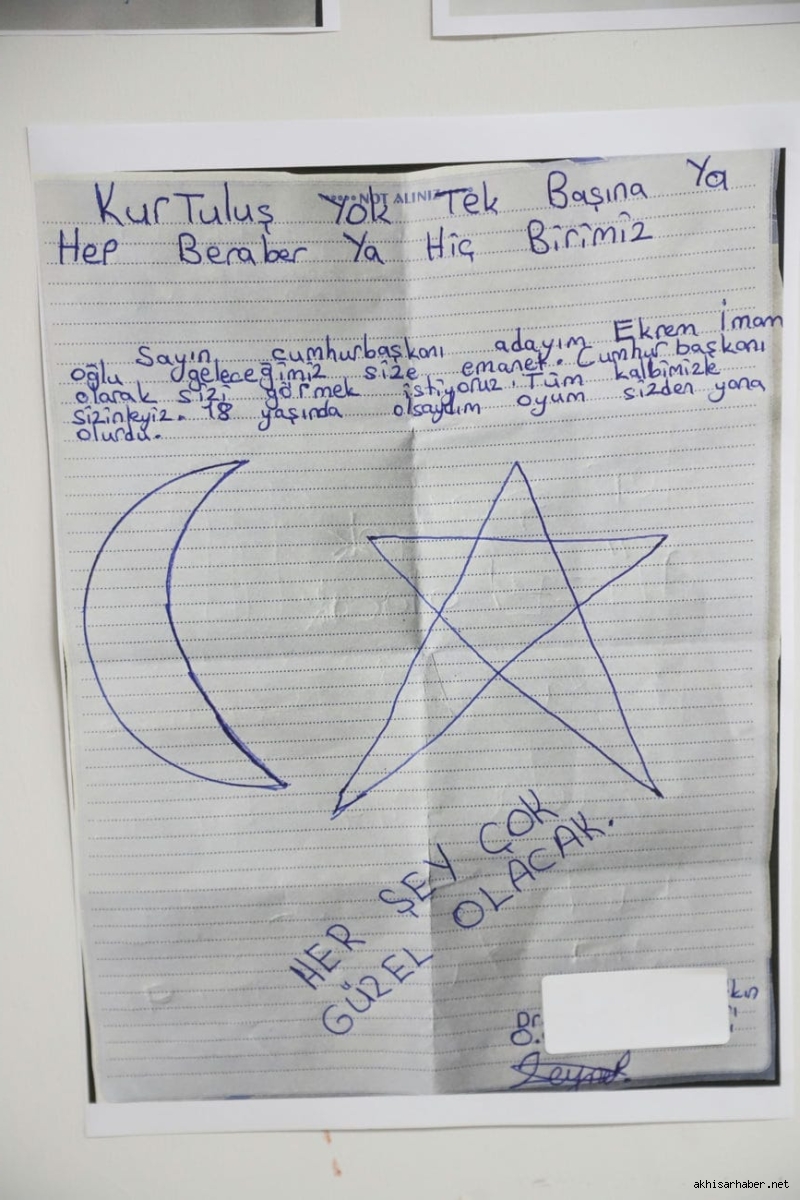 NOT ALINIZ
KurTuluş Yok Tek Başına Ya
Hep Beraber Ya Hiç Birimiz
Sayın cumhurbaşkanı adayım Ekrem İmam
oğlu geleceğimiz size emanet. Cumhur başkanı
olarak sizi görmek istiyoruz. Tüm kalbimizle
sizinleyiz. 18 yaşında olsaydım oyum sizden yana
olurdu.
HER ŞEY ÇOK
GÜZEL OLACAK.
Dr
akhisarhaber.net